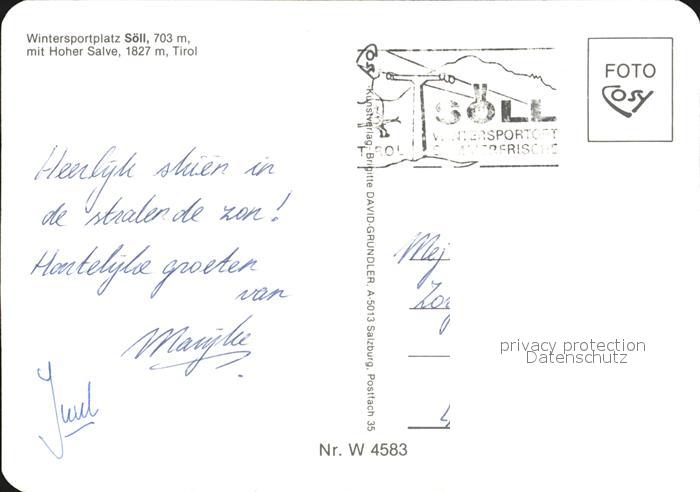 Wintersportplatz Söll, 703 m,
mit Hoher Salve, 1827 m, Tirol
Heerlijk skiën in
de stralende zon!
Hartelijke groeten
van
Marijke
Kunstverlag Brigitte DAVID-GRUNDLER, A-5013 Salzburg, Postfach 35
TIROL
SÖLL
WINTERSPORTORT
SOMMERFRISCHE
FOTO
Cosy
Mej
privacy protection
Datenschutz
Nr. W 4583